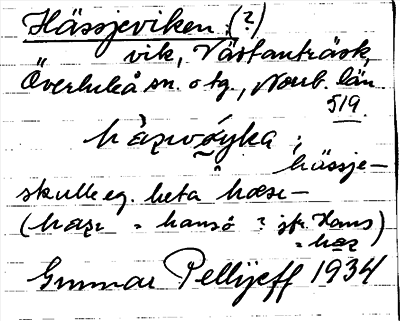 Hässjeviken (?)
vik, Västanträsk,
Överluleå sn. o tg., Norrb. län.
519.
hässje-
skulle eg. heta hæse-
(hazr = hansö ? jfr. Hans)
= haz
Gunnar Pellijeff 1934